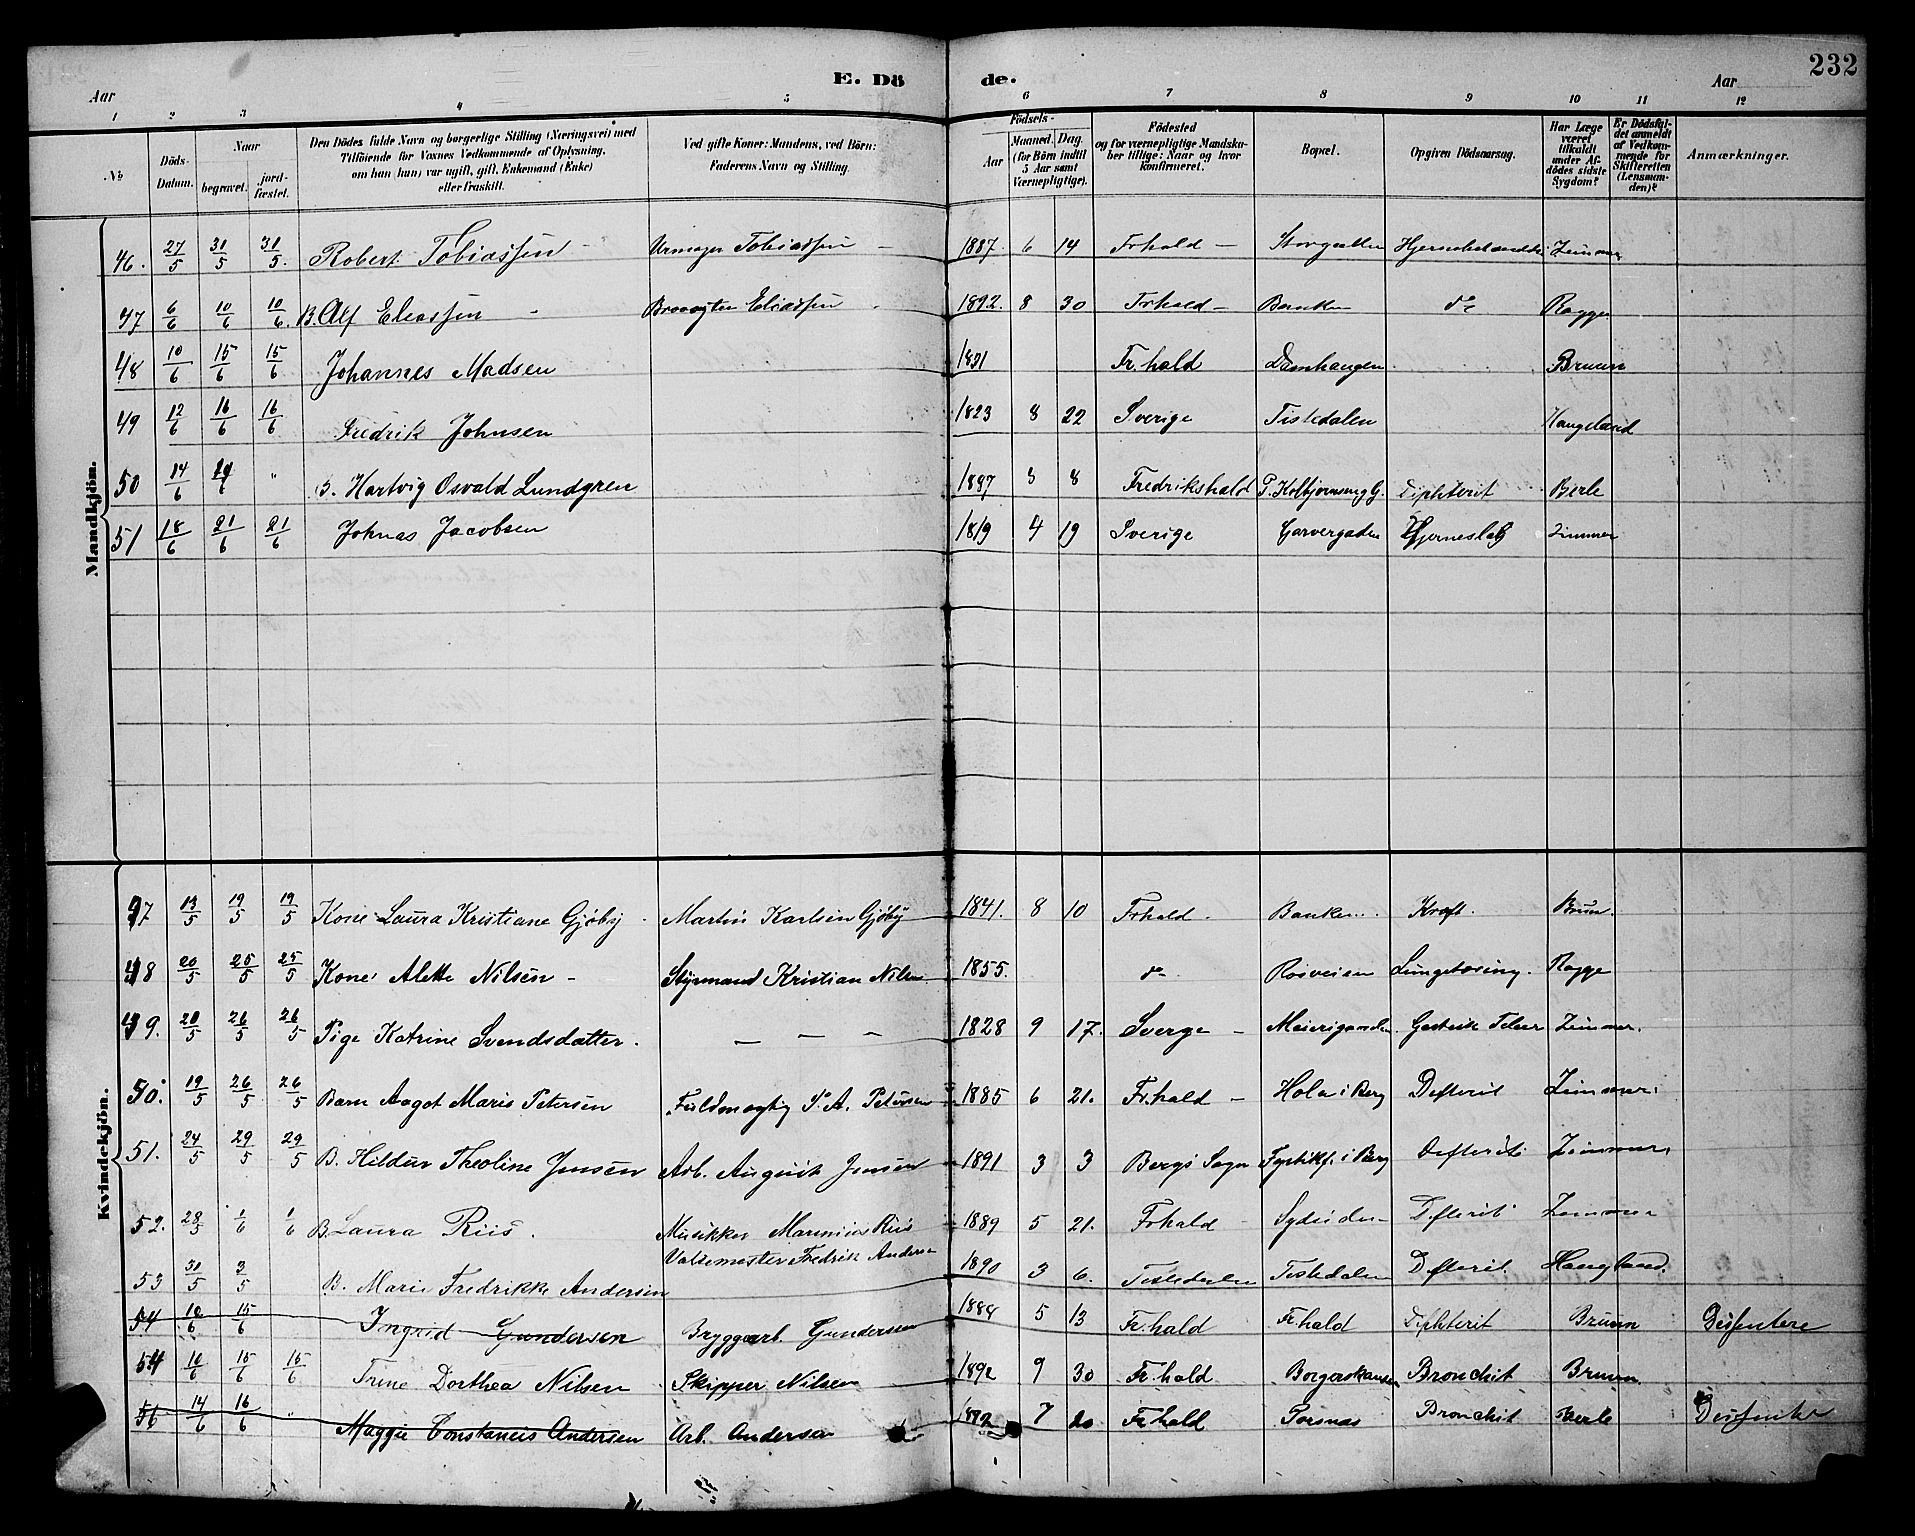 232
E. Dö de.
Aar Aar
1 2 3 4 5 6 7 8 9 10 11 12
No
Döds-Datum.
Naar begravet. jord-fæstet.
Den Dödes fulde Navn og borgerlige Stilling (Næringsvei) med Tilföiende for Voxnes Vedkommende af Oplysning, om han (hun) var ugift, gift, Enkemand (Enke) eller fraskilt.
Ved gifte Koner: Mandens, ved Börn: Faderens Navn og Stilling.
Födsels- Aar Maaned. Dag. (for Börn indtil 5 Aar samt Værnepligtige).
Födested og for værnepligtige Mandska-ber tillige: Naar og hvor konfirmeret.
Bopæl.
Opgiven Dödsaarsag.
Har Læge været tilkaldt under Af-dödes sidste Sygdom?
Er Dödsfal-det anmeldt af Vedkom-mende for Skifteretten (Lensman-den)?
Anmærkninger.
Mandkjön.
46. 27/5 30/5 30/5. Robert Tobiassen Urmager Tobiassen 1887. 6 14 Frhald Storgaden Zimmer
47 6/6 10/6 10/6. B. Alf Eliassen Eliassen 1892. 8 30 Frhald Banken do Rogge
48 10/6 15/6 15/6 Johannes Madsen 1821 Fr.hald Damhaugen Bruun
49 12/6 16/6 16/6 Fredrik Johnsen 1823 8 22 Sverige Tistedalen Haugeland
50 14/6 " B. Hartvig Osvald Lundgren 1887 3 8 Fredrikshald P. Kolbjørnsens G. Diphterit Berle
51 18/6 21/6 21/6 Johnas Jacobsen 1819 4 19 Sverige Garvergaden Hjerneslag Zimmer
Kvindekjön.
47 13/5 19/5 19/5 Kone Laura Kristiane Gjøby Martin Karlsen Gjøby 1841. 8 10 Frhald. Banken Kræft. Brun.
48 20/5 25/5 25/5 Kone Alette Nilsen Styrmand Kristian Nilsen 1855. do Rosveien Lungebetændelse Rogge
49. 20/5 26/5 26/5 Pige Katrine Svendsdatter. 1828 9 17. Sverge Gastrisk Feber Zimmer.
50. 19/5 26/5 26/5 Barn Aagot Marie Petersen Fuldmægtig P. A. Petersen 1885 6 21. Fr.hald Hola i Berg Defterit Zimmer
51. 24/5 29/5 29/5 B. Hildur Theoline Jensen Arb. August Jensen 1891 3 3 Bergs Sogn i Berg Defterit Zimmer
52. 28/5 1/6 1/6 B. Laura Riis. Musikker Marinius Riis 1889 5 21. Frhald Sydsiden Defterit Zimmer
53 30/5 3/5 B. Marie Fredrikke Andersen Valsemester Fredrik Andersen 1890 3 6. Tistedalen Tistedalen Defterit Haugland.
54 10/6 15/6 Ingrid Gundersen Bryggearb. Gundersen 1888 5 13 Fr.hald Fr.hald Diphterit Bruun Disentere
54 10/6 15/6 15/6 Trine Dorthea Nilsen Skipper Nilsen 1892 9 30 Fr.hald Borgerskansen Bronchit Bruun
56 14/6 16/6 " Maggie Constancis Andersen Arb. Andersen 1892 7 20 Fr.hald Torsnæs Bronchit Berle